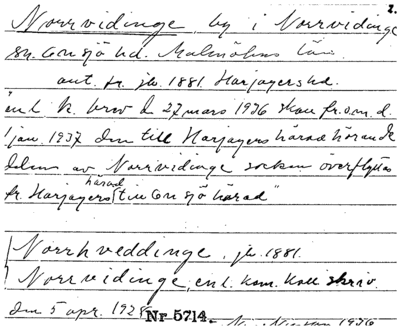 2.
Norrvidinge, by i Norrvidinge
sn. Onsjö hd. Malmöhus län
ant. fr. jb. 1881. Harjagers hd.
enl. k. brev d. 27 mars 1936 skall fr. o. m. d.
1 jan. 1937 den till Harjagers härad hörande
delen av Norrvidinge socken överflyttas
fr. Harjagers härad till Onsjö härad"
Norrhveddinge, jb. 1881.
Norrvidinge, enl. kom. koll skriv.
den 5 apr. 1928 Nr 5714. 1936